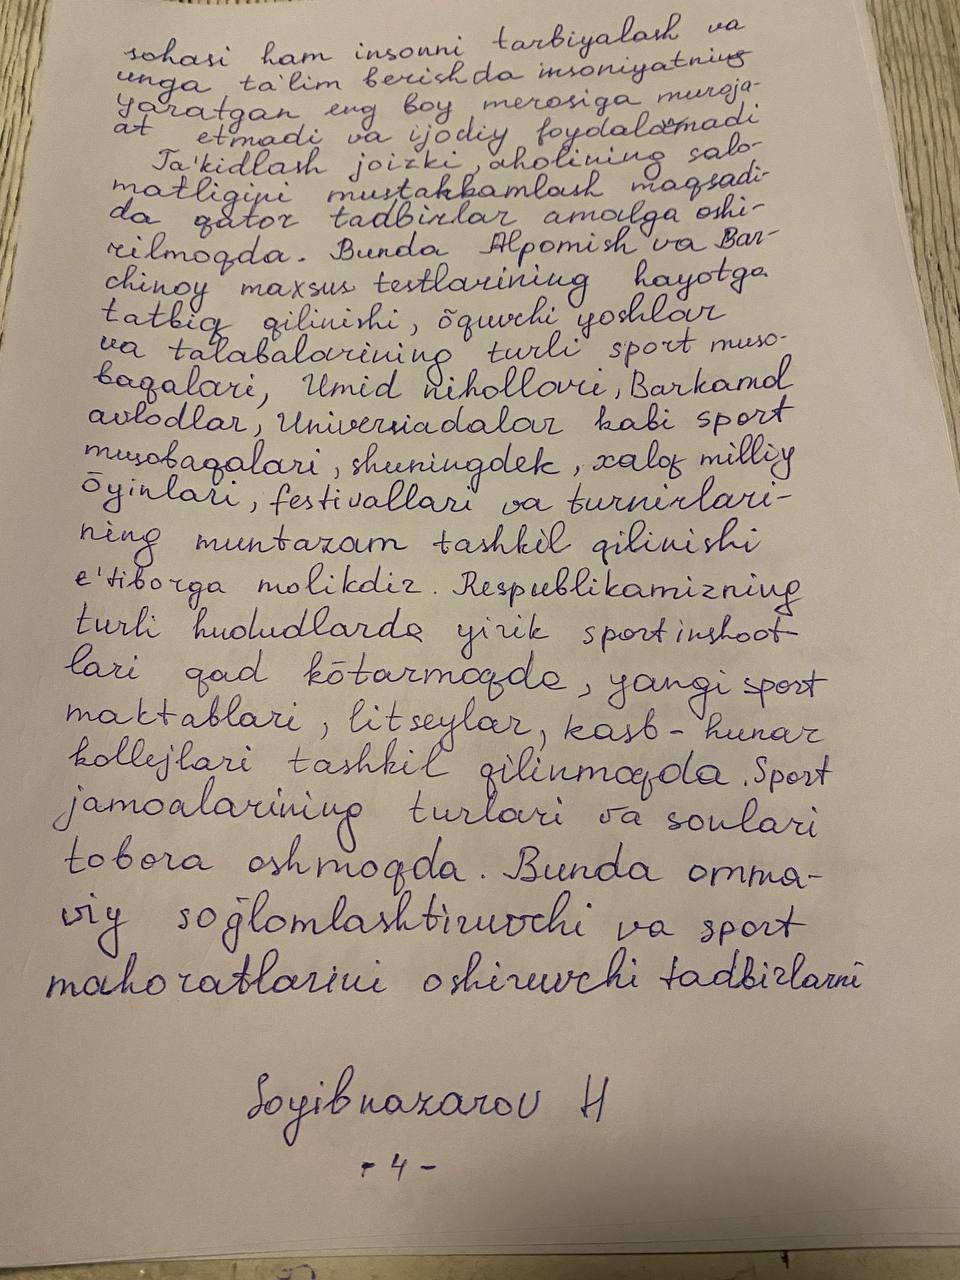 sohasi ham insonni tarbiyalash va
unga ta'lim berishda insoniyatning
yaratgan eng boy merosiga muroja-
at etmadi va ijodiy foydalanmadi
Ta'kidlash joizki, aholining salo-
matligini mustahkamlash maqsadi-
da qator tadbirlar amalga oshi-
rilmoqda. Bunda Alpomish va Bar-
chinoy maxsus testlarining hayotga
tatbiq qilinishi, õquvchi yoshlar
va talabalarining turli sport muso-
baqalari, Umid nihollari, Barkamol
avlodlar, Universiadalar kabi sport
musobaqalari, shuningdek, xalq milliy
õyinlari, festivallari va turnirlari-
ning muntazam tashkil qilinishi
e'tiborga molikdir. Respublikamizning
turli hududlarda yirik sport inshoot
lari qad kõtarmoqda, yangi sport
maktablari, litseylar, kasb-hunar
kollejlari tashkil qilinmoqda. Sport
jamoalarining turlari va sonlari
tobora oshmoqda. Bunda omma-
viy soğlomlashtiruvchi va sport
mahoratlarini oshiruvchi tadbirlarni
Soyibnazarov H
- 4 -